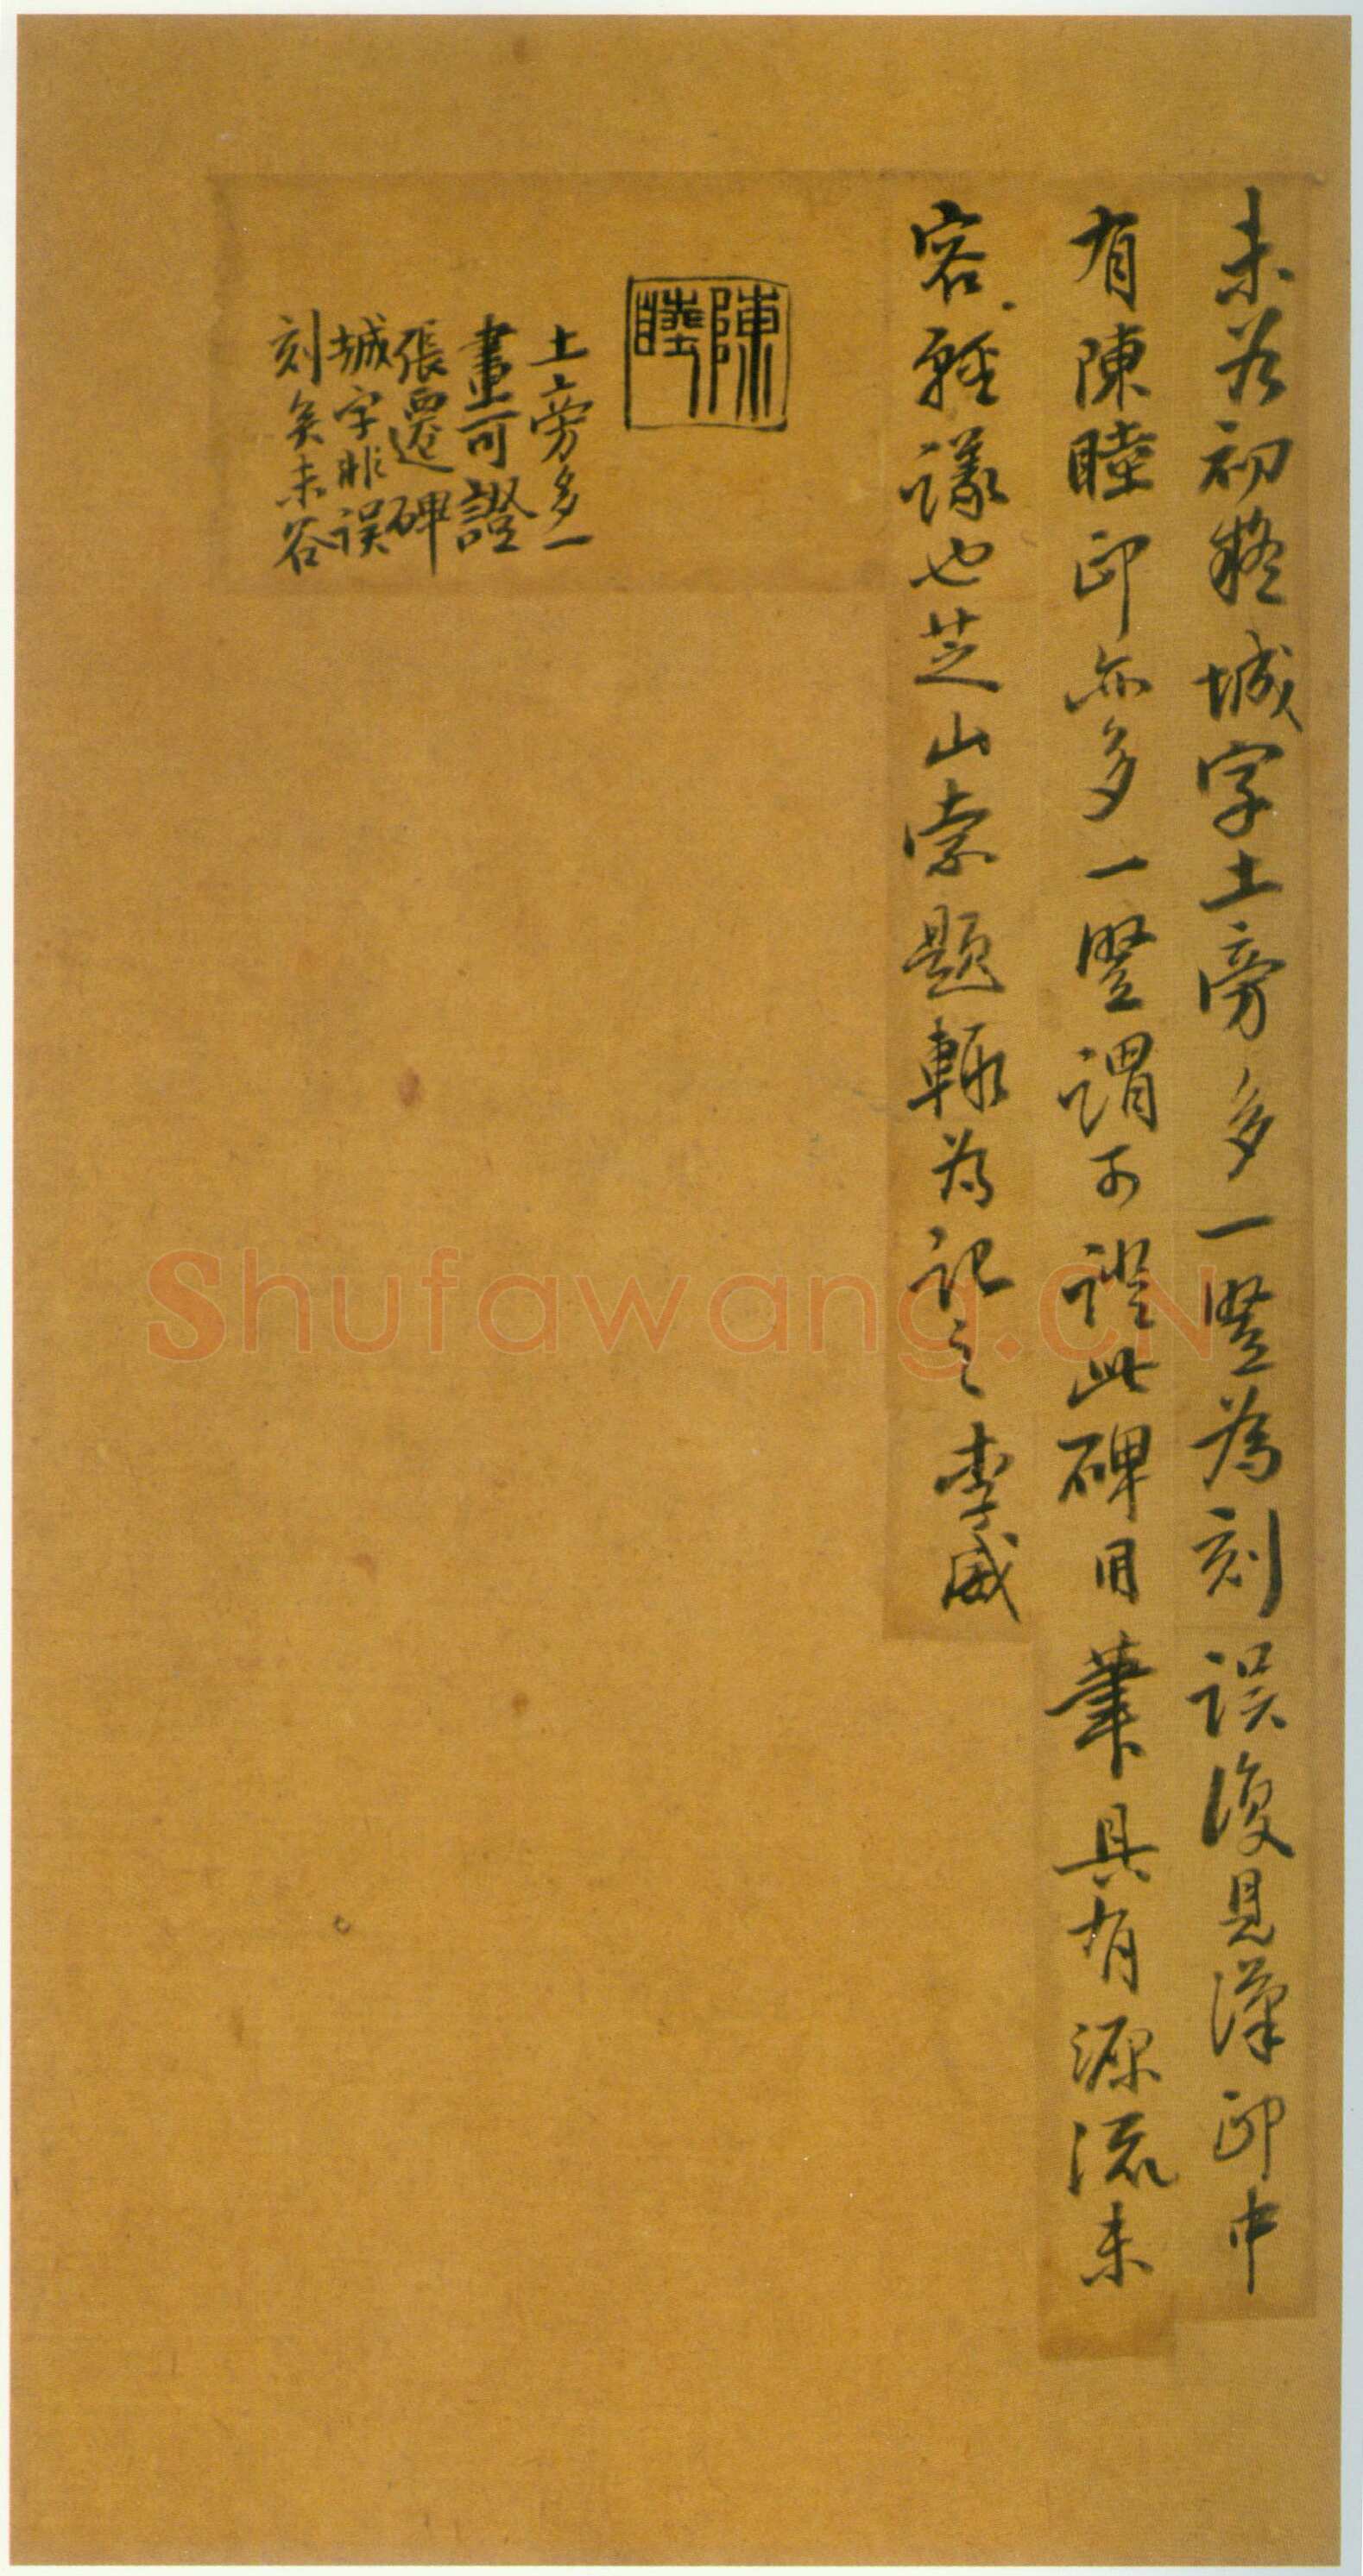 未谷初疑城字土旁多一豎為刻误復見漢印中
有陳睦印亦多一豎謂可證此碑用筆具有源流未
容輕議也芝山索題輒為記之李威
陳睦
土旁多一
畫可證
張遷碑
城字非误
刻矣未谷
Shufawang.CN